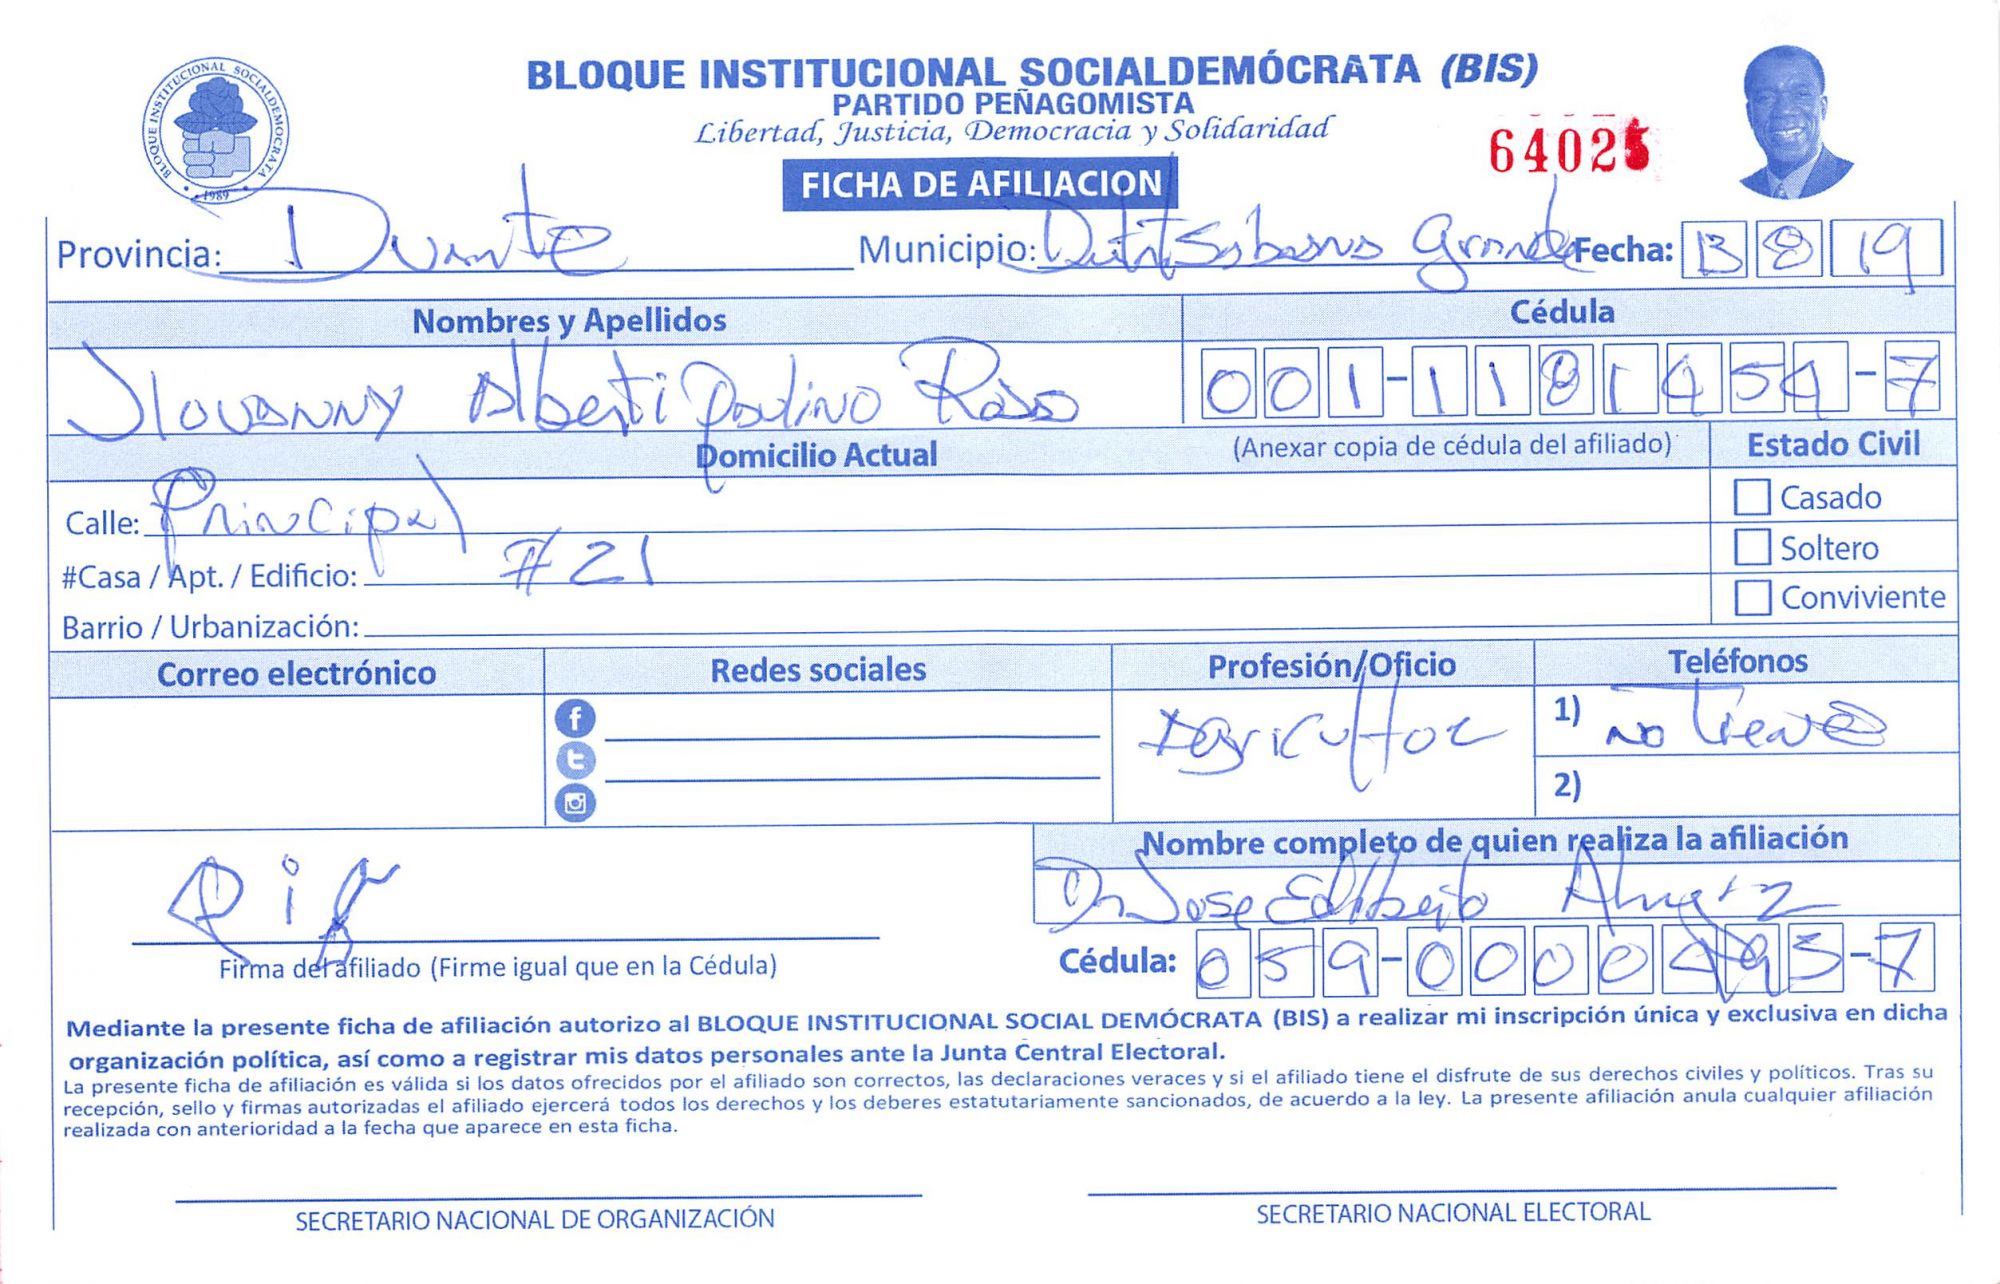 BLOQUE INSTITUCIONAL SOCIALDEMOCRATA
1989
BLOQUE INSTITUCIONAL SOCIALDEMÓCRATA (BIS)
PARTIDO PEÑAGOMISTA
Libertad, Justicia, Democracia y Solidaridad
FICHA DE AFILIACION
6402
Provincia: Duarte Municipio: Sabana Grande Fecha: 13 8 19
Nombres y Apellidos Cédula
Jiovanny Alberti Paulino 001-1181454-7
Domicilio Actual (Anexar copia de cédula del afiliado) Estado Civil
Calle: Principal Casado
#Casa / Apt. / Edificio: #21 Soltero
Barrio / Urbanización: Conviviente
Correo electrónico Redes sociales Profesión/Oficio Teléfonos
Agricultor 1) no Tiene
2)
Nombre completo de quien realiza la afiliación
Dr Jose Edilberto Alvarez
Firma del afiliado (Firme igual que en la Cédula) Cédula: 059-0000495-7
Mediante la presente ficha de afiliación autorizo al BLOQUE INSTITUCIONAL SOCIAL DEMÓCRATA (BIS) a realizar mi inscripción única y exclusiva en dicha
organización política, así como a registrar mis datos personales ante la Junta Central Electoral.
La presente ficha de afiliación es válida si los datos ofrecidos por el afiliado son correctos, las declaraciones veraces y si el afiliado tiene el disfrute de sus derechos civiles y políticos. Tras su
recepción, sello y firmas autorizadas el afiliado ejercerá todos los derechos y los deberes estatutariamente sancionados, de acuerdo a la ley. La presente afiliación anula cualquier afiliación
realizada con anterioridad a la fecha que aparece en esta ficha.
SECRETARIO NACIONAL DE ORGANIZACIÓN SECRETARIO NACIONAL ELECTORAL